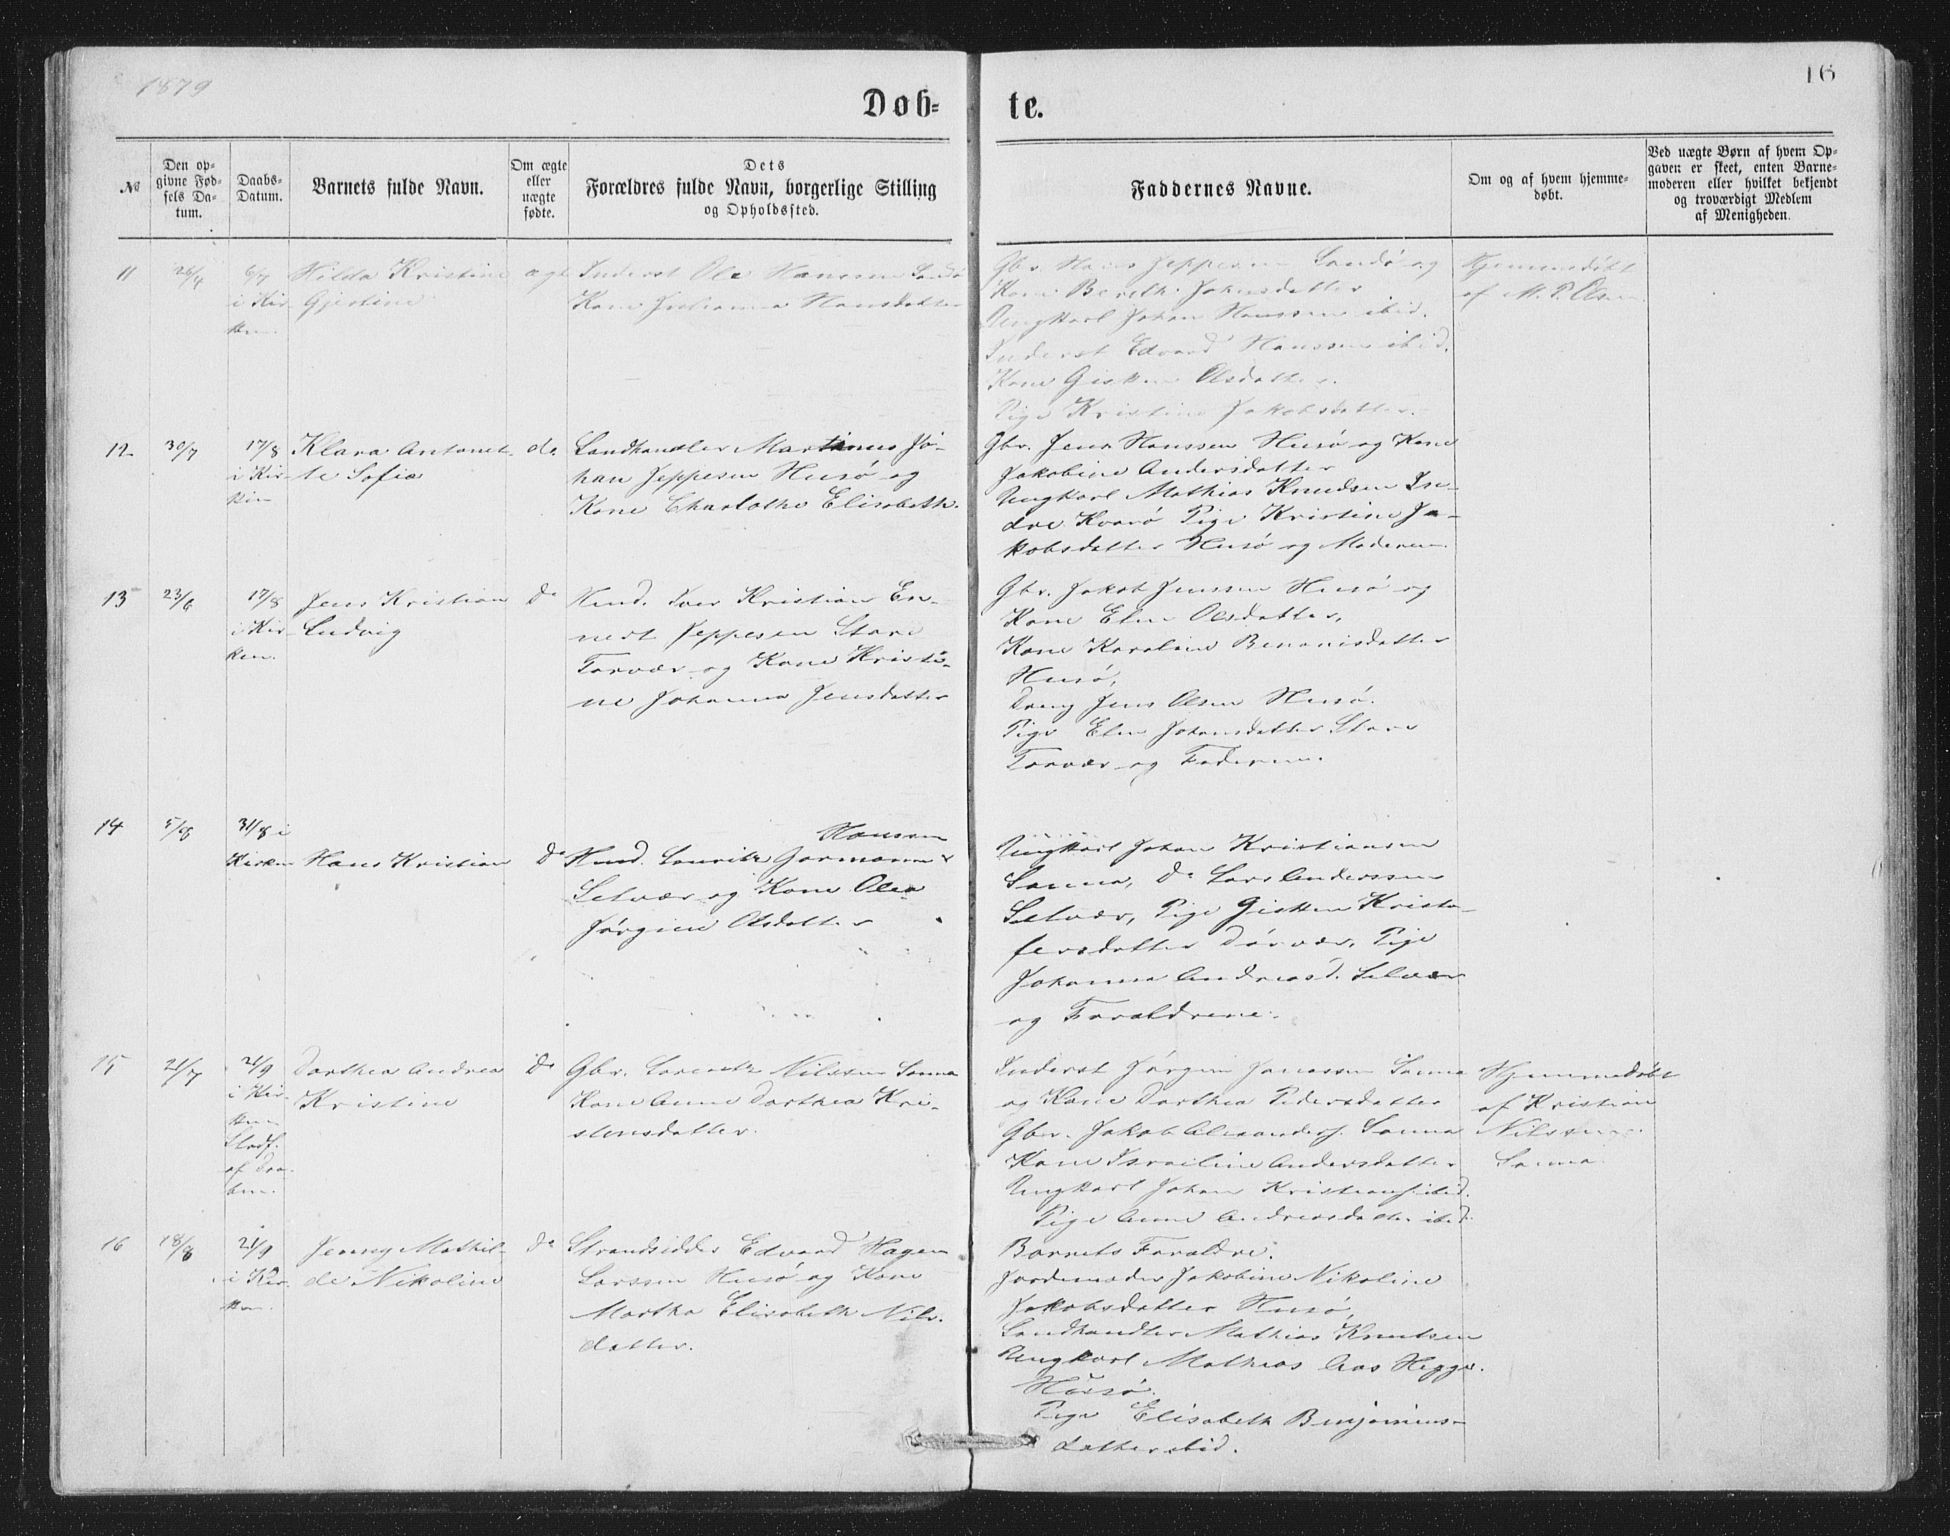 1879
16
Døb-
te.
№
Den op-
givne Fød-
sels Da-
tum.
Daabs-
Datum.
Barnets fulde Navn.
Om ægte
eller
uægte
fødte.
Dets
Forældres fulde Navn, borgerlige Stilling
og Opholdssted.
Faddernes Navne.
Om og af hvem hjemme-
døbt.
Ved uægte Børn af hvem Op-
gaven er skeet, enten Barne-
moderen eller hvilket bekjendt
og troværdigt Medlem
af Menigheden.
11
26/4
6/7
i Kir
ken.
Hilda Kristine
Gjertine
ægt
Inderst Ole Hanssen Sandø
Kone Julianna Hansdatter
Gbr. Hans Jeppesen Sandø og
Kone Bereth Johnsdatter
Ungkarl Johan Hanssen ibid.
Inderst Edvard Hanssen ibid.
Kone Gisken Olsdatter.
Pige Kristine Jakobsdatter.
Hjemmedøbt
af M. P. Olsen
12
30/7
17/8
i Kir-
ken
Klara Antonet-
te Sofie
do
Landhandler Martinus Jo-
han Jeppesen Husø og
Kone Charlothe Elisabeth.
Gbr. Jens Hanssen Husø og Kone
Jakobine Andersdatter
Ungkarl Mathias Knudsen In-
dre Kvarø Pige Kristine Ja-
kobsdatter Husø og Moderen.
13
23/6
17/8
i Kir-
ken.
Jens Kristian
Ludvig
do
Hmd. Iver Kristian En-
nest Jeppesen Store
Torvær og Kone Kristi-
ne Johanna Jensdatter
Gbr. Jakob Jenssen Husø og
Kone Elen Olsdatter,
Kone Karoline Benonisdatter
Husø,
Dreng Jens Olsen Husø.
Pige Elen Johansdatter Store
Torvær og Faderen.
14
5/8
31/8 i
Kirken
Hans Kristian
do
Hansen
Hmd. Lauritz Gormann x
Selvær og Kone Olea
Jørgine Olsdatter
Ungkarl Johan Kristiansen
Sanna, do Lars Anderssen
Selvær, Pige Gisken Kristo-
fersdatter Dørvær, Pige
Johanna Andreasd. Selvær
og Forældrene.
15
21/7
21/9
i Kir-
ken
Stadf.
af Daa-
ben.
Dorthea Andrea
Kristine
do
Gbr. Lorentz Nilssen Sanna
Kone Anne Dorthea Kri-
stensdatter.
Inderst Jørgen Jonassen Sanna
og Kone Dorthea Pedersdatter
Gbr. Jakob Alexanders. Sanna
Kone Israeline Andersdatter
Ungkarl Johan Kristians. ibid.
Pige Anne Andreasdatter ibid.
Hjemmedøbt
af Kristian
Nilssen
Sanna.
16
18/8
21/9
i Kir-
ken.
Jenny Mathil-
de Nikoline
do
Strandsidder Edvard Hagen
Larssen Husø og Kone
Martha Elisabeth Nils-
datter.
Barnets Forældre.
Jordemoder Jakobine Nikoline
Jakobsdatter Husø,
Landhandler Mathias Knutsen
Ungkarl Mathias Aas Hegge.
Husø.
Pige Elisabeth Benjamins-
datter ibid.